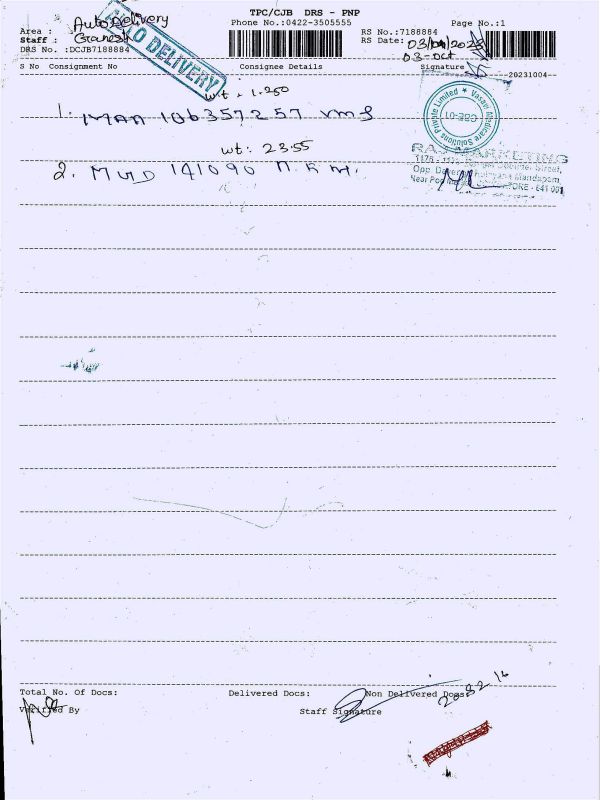 TPC/CJB DRS - PNP
Phone No.:0422-3505555
Page No.:1
Area : Auto Delivery
Staff : Ganesh
DRS No. :DCJB7188884
AUTO DELIVERY
RS No.:7188884
RS Date: 03/04/2023
03-Oct
S No Consignment No Consignee Details Signature
20231004
wt. 1.250
1. MAA 106357257 VMS
Vasavi Medicare Solutions Private Limited
CBE-01
wt: 23.55
RAJ MARKETING
2. MUD 141090 n.k.m.
Street,
Opp
Mandapam,
Near
ORE - 641 001
Total No. Of Docs: Delivered Docs: Non Delivered Docs:
Verified By Staff Signature